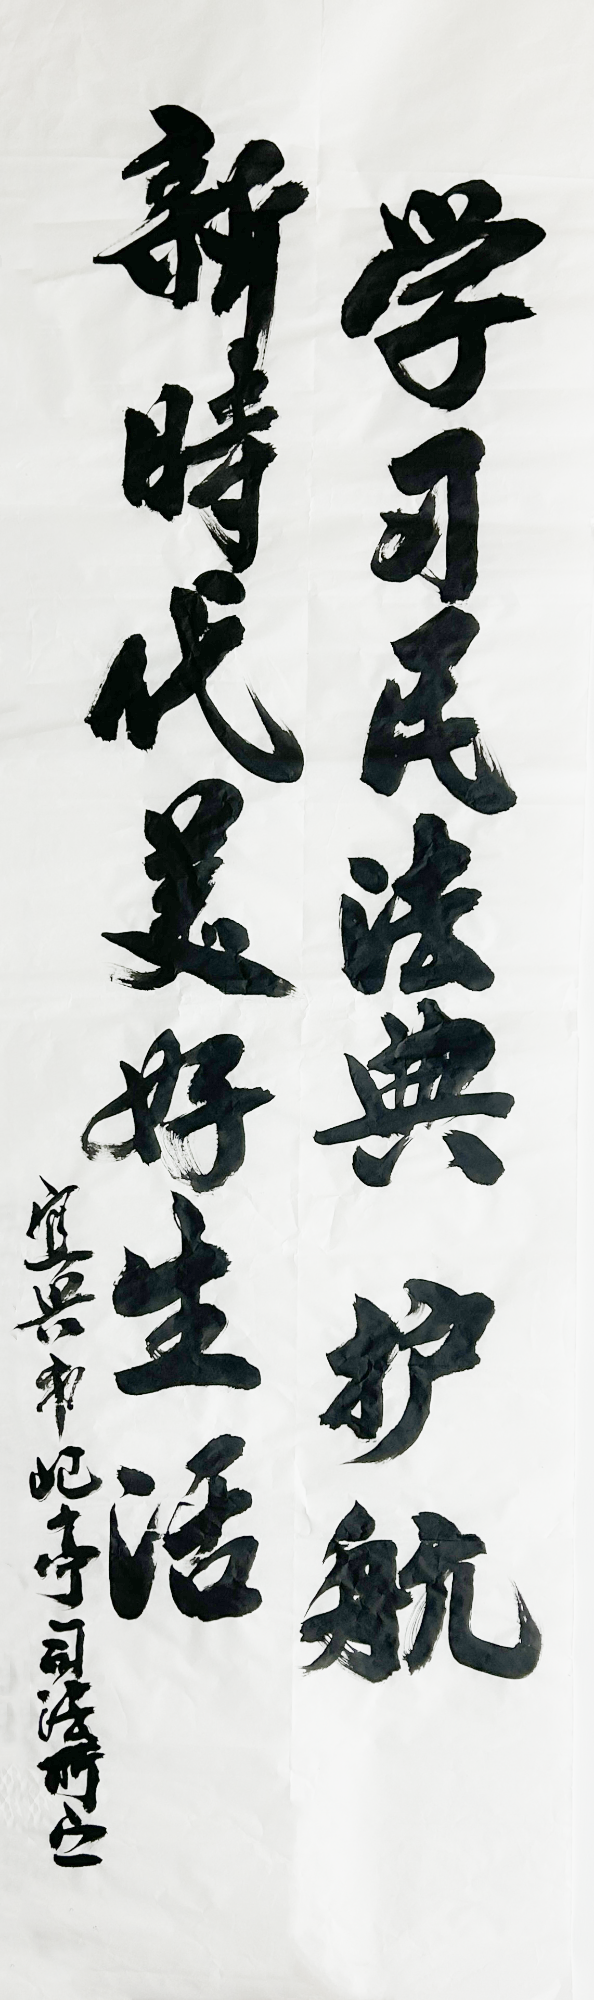 学习民法典护航
新時代美好生活
宜兴市屺亭司法所宣